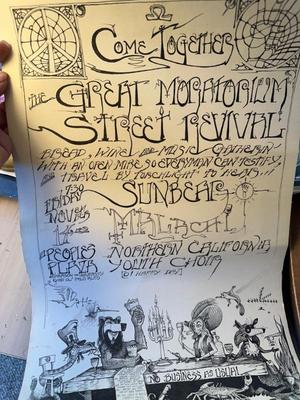 Come Together
the Great Moratorium
Street Revival
Bread, Wine and Music Gatherin
with an open mike so everyman can testify
and travel by torchlight to hears...!
7:30
Friday
Nov 14
Sunbear
Malachi
Peoples
Plaza
Northern California
Youth Choir
(O! Happy Day)
No Business as Usual